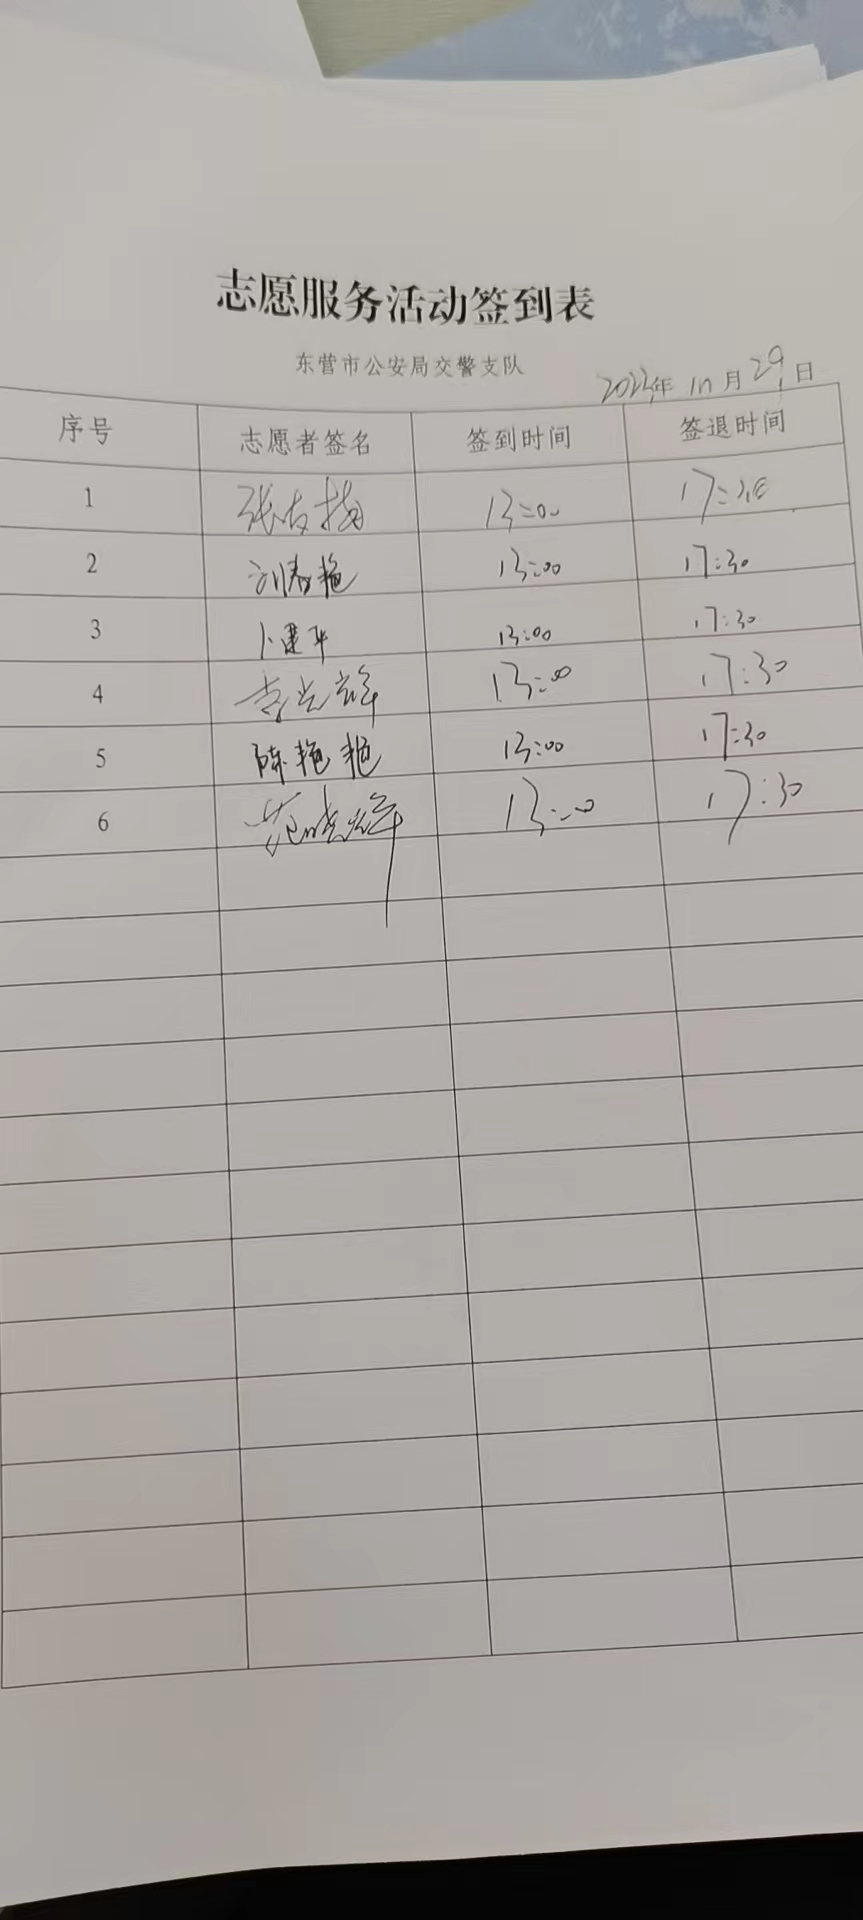 志愿服务活动签到表
东营市公安局交警支队
年 月 29 日
序号 志愿者签名 签到时间 签退时间
1 张友梅 13:00
2 刘春艳 13:00 17:30
3 卜建平 13:00 17:30
4 13:00 17:30
5 陈艳艳 13:00 17:30
6 范晓辉 13:00 17:30